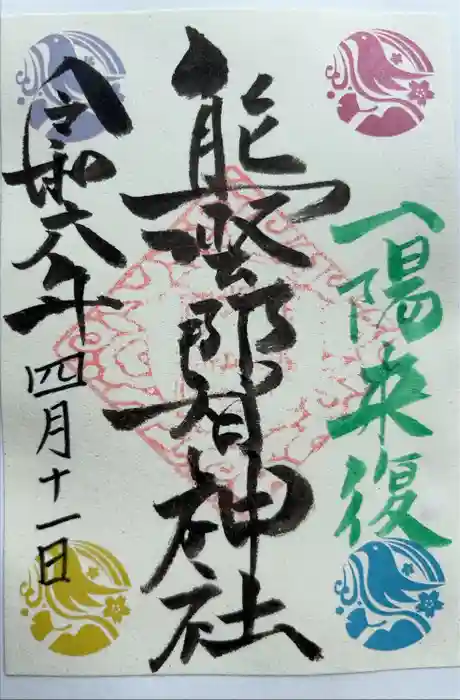 一陽来復
熊野那智神社
令和六年
四月十一日